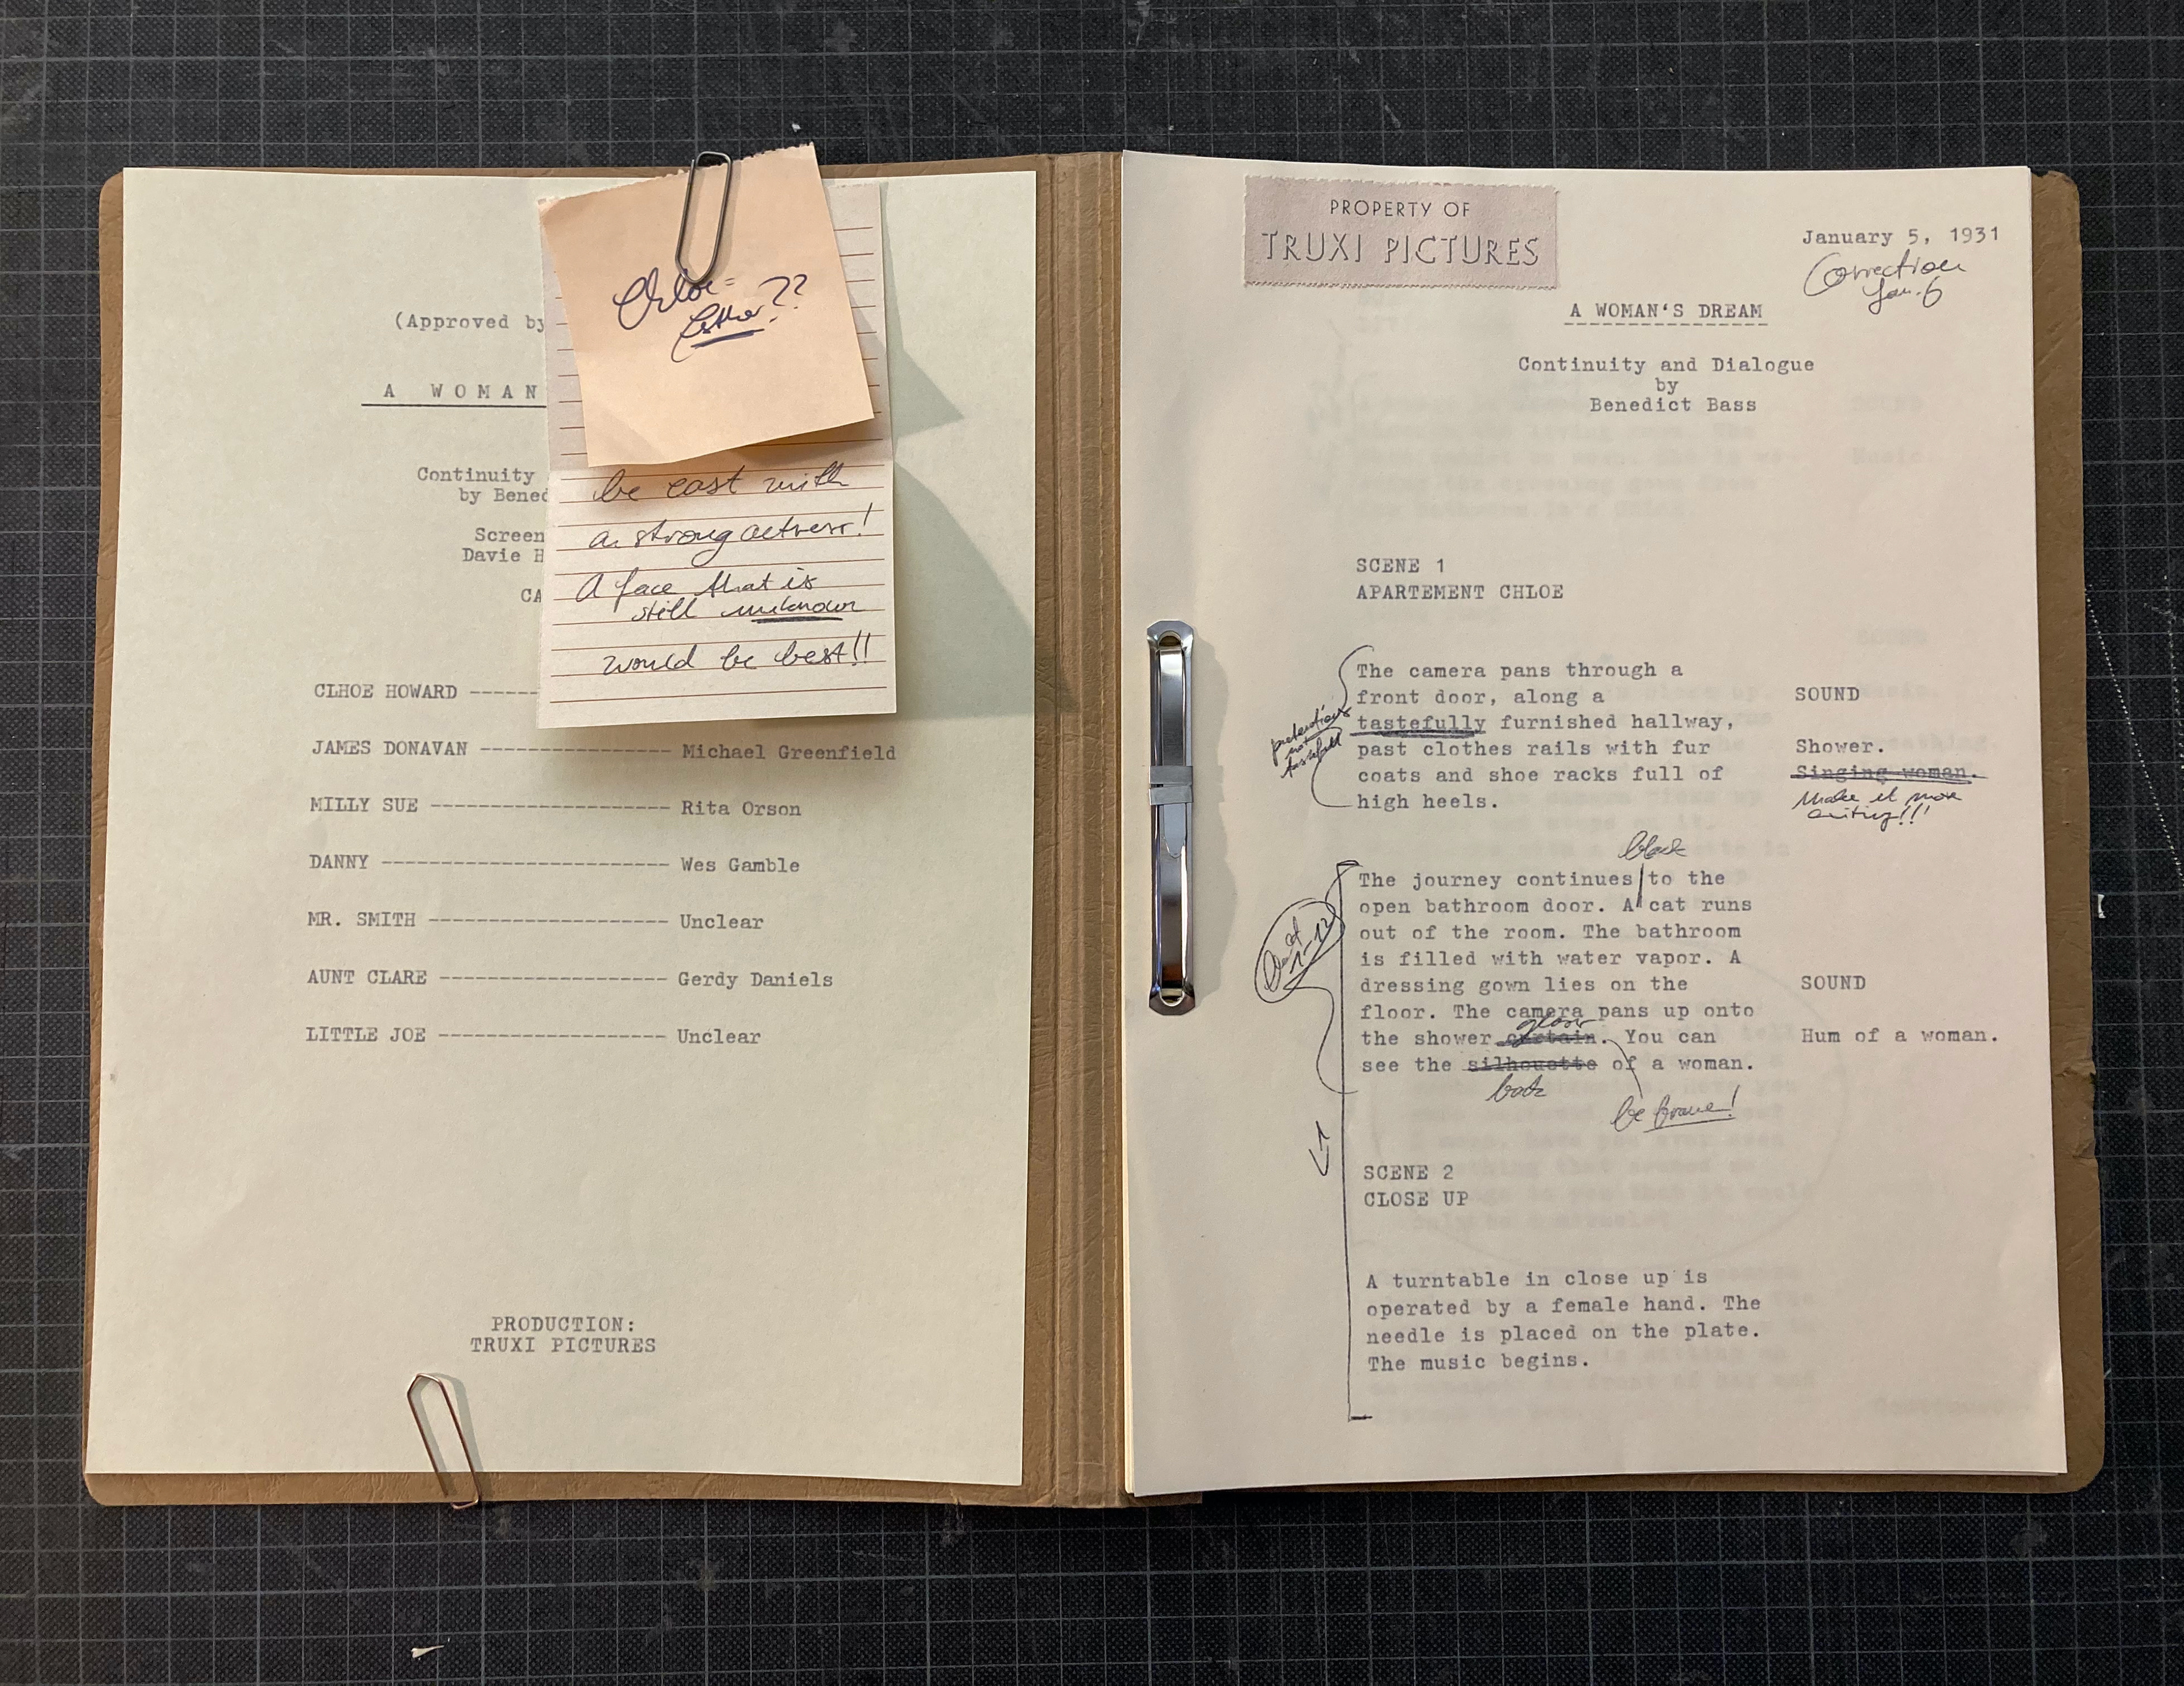 (Approved by
A WOMAN
Continuity
by Bened
Screen
Davie H
CA
CLHOE HOWARD ------
JAMES DONAVAN ---------------- Michael Greenfield
MILLY SUE -------------------- Rita Orson
DANNY ------------------------ Wes Gamble
MR. SMITH -------------------- Unclear
AUNT CLARE ------------------- Gerdy Daniels
LITTLE JOE ------------------- Unclear
PRODUCTION:
TRUXI PICTURES
Chloe =
Esther??
be cast with
a strong actress!
A face that is
still unknown
would be best!!
PROPERTY OF
TRUXI PICTURES
January 5, 1931
Correction
Jan. 6
A WOMAN'S DREAM
Continuity and Dialogue
by
Benedict Bass
SCENE 1
APARTEMENT CHLOE
The camera pans through a
front door, along a
tastefully furnished hallway,
past clothes rails with fur
coats and shoe racks full of
high heels.
not
SOUND
Shower.
Singing woman.
Make it more
exciting!!!
black
The journey continues to the
open bathroom door. A cat runs
out of the room. The bathroom
is filled with water vapor. A
dressing gown lies on the
floor. The camera pans up onto
the shower curtain. You can
see the silhouette of a woman.
be brave!
SOUND
Hum of a woman.
SCENE 2
CLOSE UP
A turntable in close up is
operated by a female hand. The
needle is placed on the plate.
The music begins.